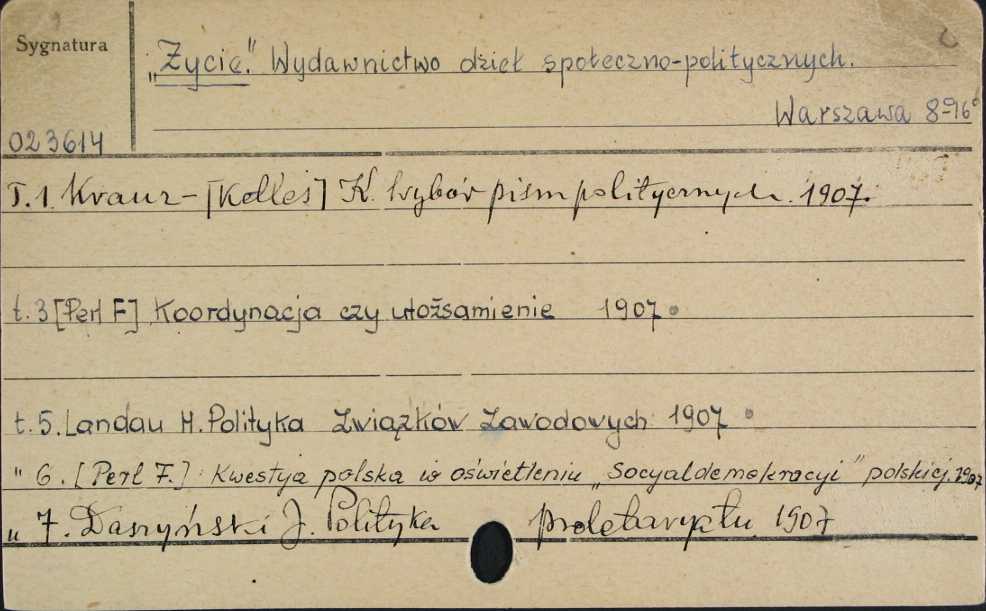 Sygnatura
„Życie." Wydawnictwo dzieł społeczno-politycznych.
Warszawa 8-96°
023614
T.1. Krauz-[Kelles] K. Wybór pism politycznych. 1907.
t.3[Perl F] Koordynacja czy utożsamienie 1907
t.5. Landau H. Polityka Związków Zawodowych 1907
" 6. [Perl F.] Kwestya polska w oświetleniu „Socyaldemokracyi" polskiej. 1907
" 7. Daszyński J. Polityka proletaryatu 1907